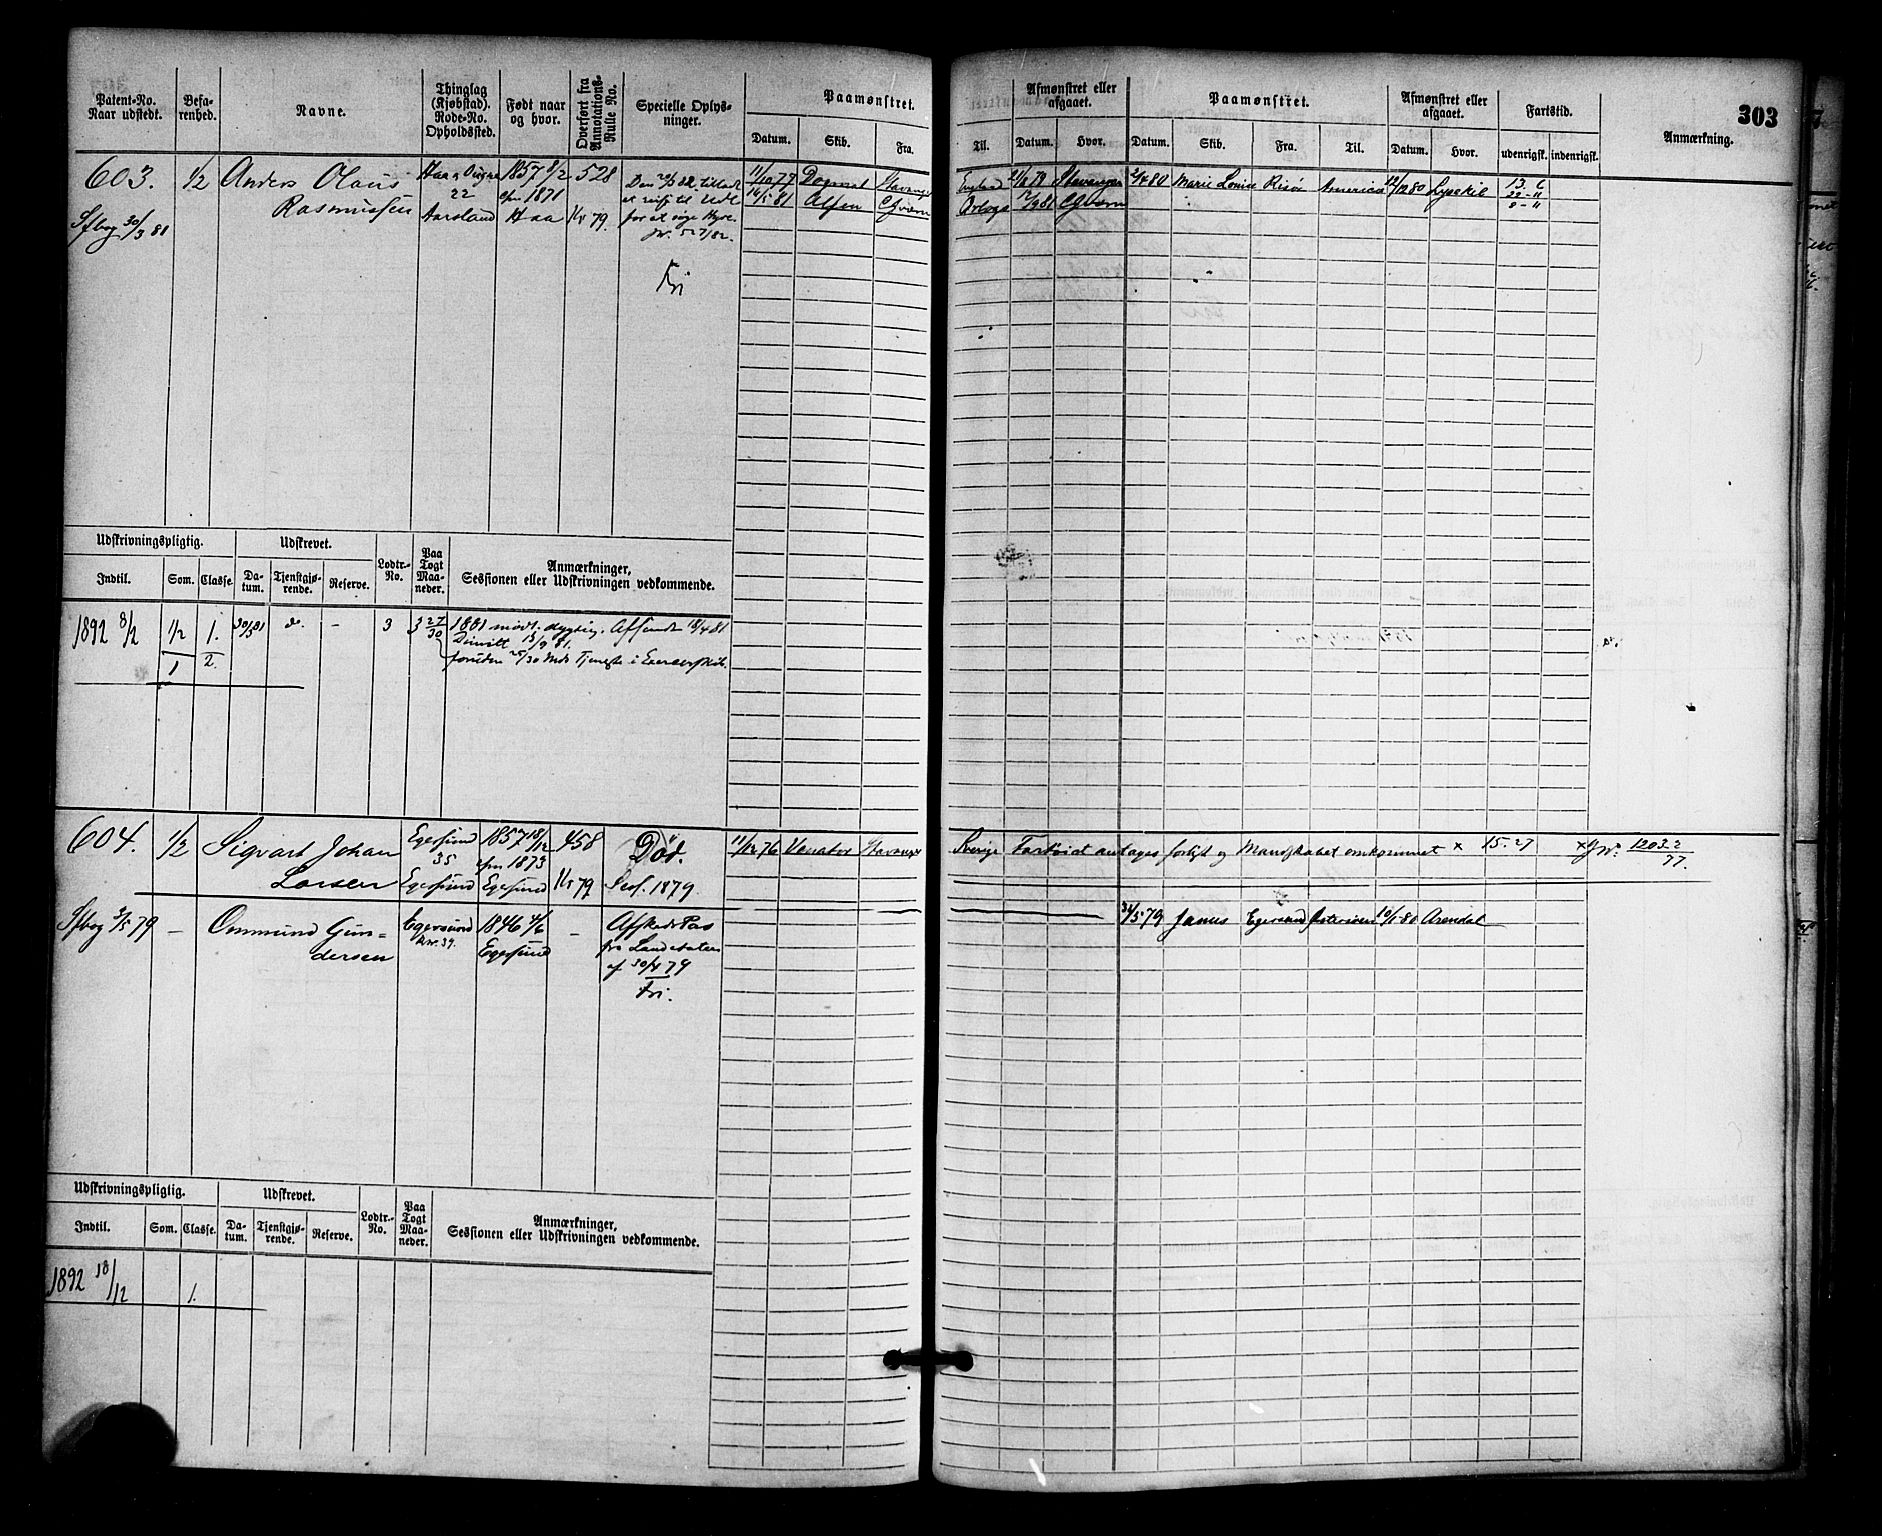 303
Patent-No. Naar udstedt.
Befarenhed.
Navne.
Thinglag (Kjøbstad). Rode-No. Opholdssted.
Født naar og hvor.
Overført fra Annotations-Rulle No.
Specielle Oplysninger.
Paamønstret.
Datum. Skib. Fra.
Til.
Afmønstret eller afgaaet.
Datum. Hvor.
Paamønstret.
Datum. Skib. Fra. Til.
Afmønstret eller afgaaet.
Datum. Hvor.
Fartstid.
udenrigsk. indenrigsk.
Anmærkning.
603. 1/2 Anders Olaus
Rasmussen
22
Aarsland
1857 8/2
1871
Haa
528
11/10 79 Dagmar Stavanger England Stavanger 2/4 80 Marie Louise Risør America 12/12 80 Lysekil
16/5 81 Alfen 12/9 81
30/3 81
for at søge Hyre.
527/82.
Fri
Udskrivningspligtig.
Indtil. Som. Classe.
Udskrevet.
Datum. Tjenstgjørende. Reserve.
Lodtr.-No.
Paa Togt Maaneder.
Anmærkninger,
Sessionen eller Udskrivningen vedkommende.
1892 8/2 1/2 1. 30/3 81 do. - 3 3 27/30 1881 mødt. dygtig. Afsendt 18/4 81
1 2. Dimitt. 13/9 81.
foruden 25/30 Mdr Tjeneste i
604. 1/2 Sigvart Johan
Larsen
Egersund
35
Egersund
1857 18/12
1873
Egersund
458
79
Död.
Sess. 1879.
11/12 76 Venator Stavanger Sverige Fartöiet antages forlist og Mandskabet omkommet × 15.27 × J. No. 1203.2/77.
79 - Ommund Gundersen
Egersund
No. 39.
1846 4/6
Egersund
-
Afskeds Pas
fra Landetaten
af 30/4 79
Fri.
31/5 79 James Egersund Østersøen 10/1 80 Arendal
Udskrivningspligtig.
Indtil. Som. Classe.
Udskrevet.
Datum. Tjenstgjørende. Reserve.
Lodtr.-No.
Paa Togt Maaneder.
Anmærkninger,
Sessionen eller Udskrivningen vedkommende.
1892 18/12 1.